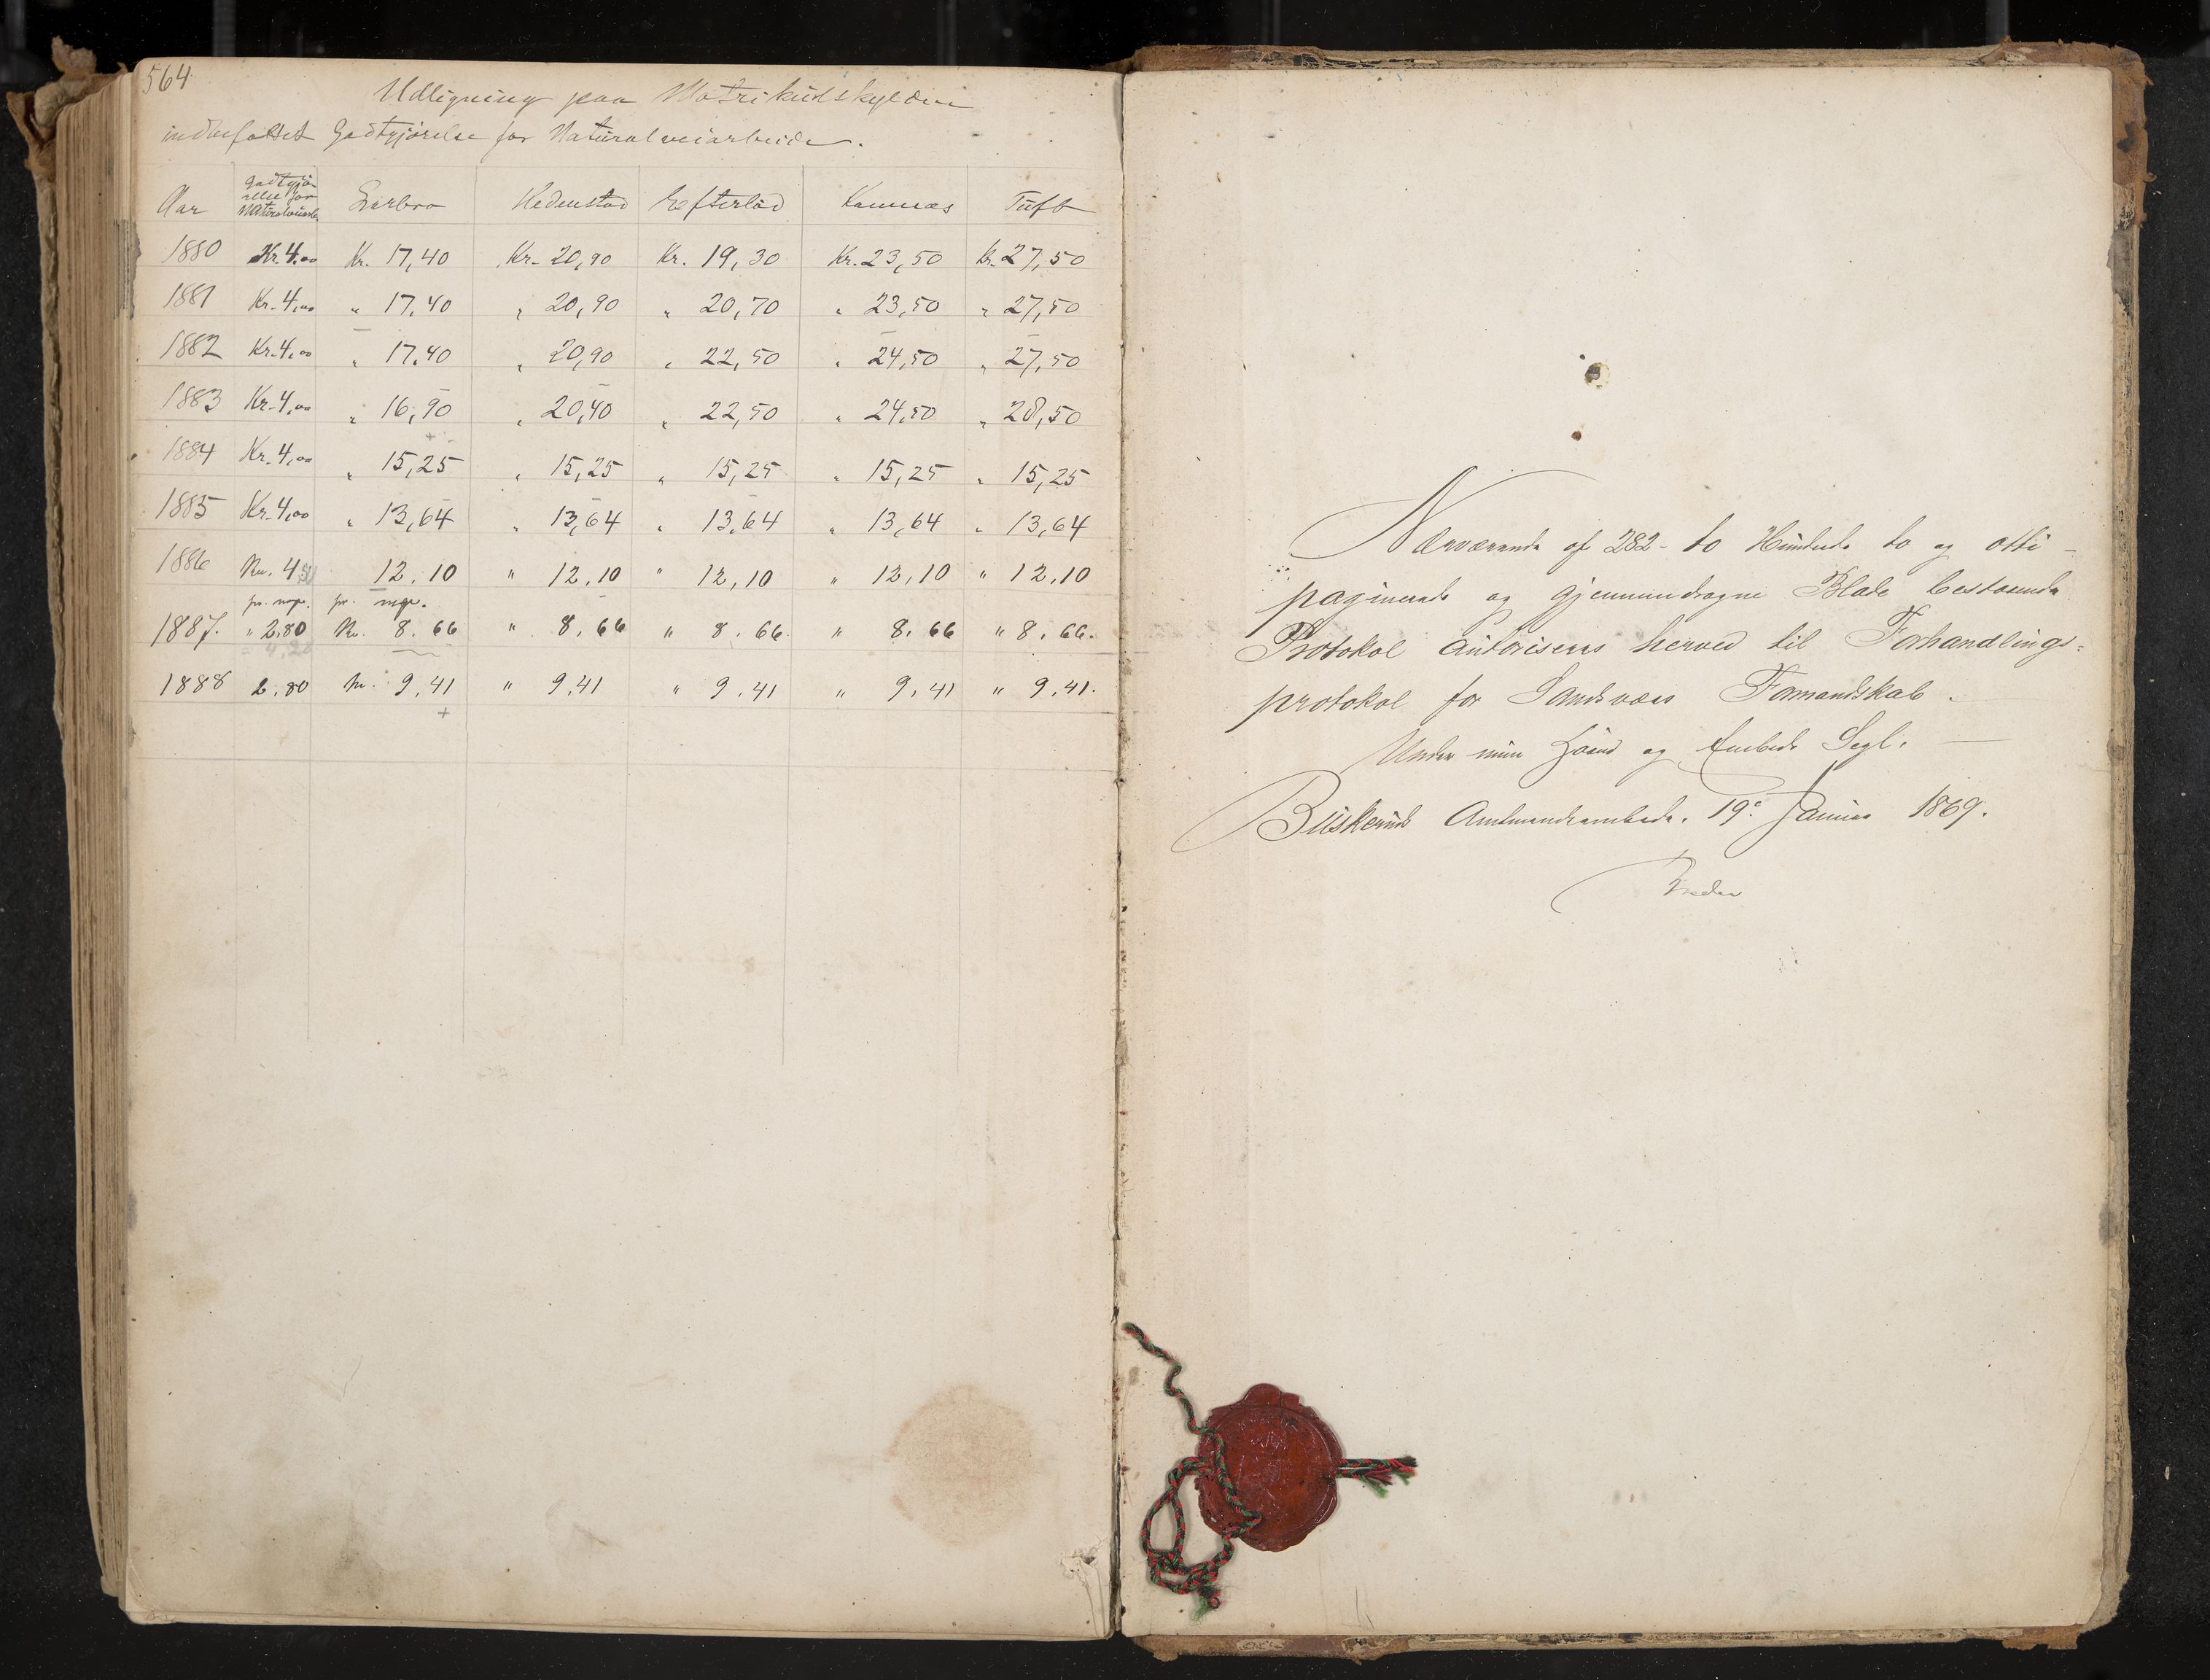 564
Udligning paa Matrikulskylden
indbefattet Godtgjørelse for Naturalveiarbeide.
Aar Godtgjø- Evebro Hedenstad Eftelød Komnæs Tuft
relse for
1880 Kr. 4,00 Kr. 17,40 Kr. 20,90 Kr. 19,30 Kr. 23,50 Kr. 27,50
1881 Kr. 4,00 " 17,40 " 20,90 " 20,70 " 23,50 " 27,50
1882 Kr. 4,00 " 17,40 " 20,90 " 22,50 " 24,50 " 27,50
1883 Kr. 4,00 " 16,90 " 20,40 " 22,50 " 24,50 " 28,50
1884 Kr. 4,00 " 15,25 " 15,25 " 15,25 " 15,25 " 15,25
1885 Kr. 4,00 " 13,64 " 13,64 " 13,64 " 13,64 " 13,64
1886 Kr. 4 12.10 " 12.10 " 12,10 " 12,10 " 12.10
pr. pr.
1887. " 2.80 Kr. 8.66 " 8.66 " 8.66. " 8.66 " 8.66.
1888 2.80 Kr. 9,41 " 9,41 " 9.41 " 9,41 " 9.41.
Nærværende af 282 - to Hundrede to og otti -
paginerede og gjennemdragne Blade bestaaende
Protokol autoriseres herved til Forhandlings-
protokol for Sandsvær Formandskab.
Under min Haand og Embeds Segl.
Buskeruds Amtmandsembede. 19de Januar 1869.